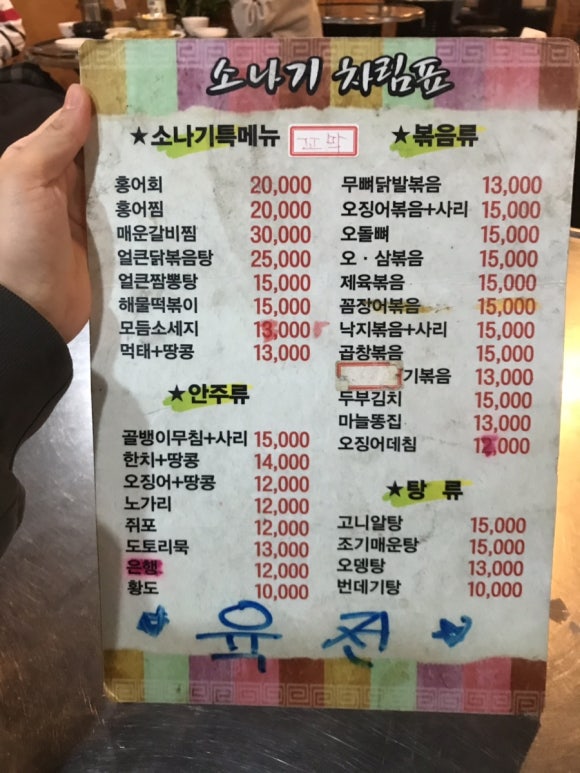 소나기 차림표
★소나기특메뉴 꼬막
홍어회 20,000
홍어찜 20,000
매운갈비찜 30,000
얼큰닭볶음탕 25,000
얼큰짬뽕탕 15,000
해물떡볶이 15,000
모듬소세지 13,000
먹태+땅콩 13,000
★안주류
골뱅이무침+사리 15,000
한치+땅콩 14,000
오징어+땅콩 12,000
노가리 12,000
쥐포 12,000
도토리묵 13,000
은행 12,000
황도 10,000
★볶음류
무뼈닭발볶음 13,000
오징어볶음+사리 15,000
오돌뼈 15,000
오·삼볶음 15,000
제육볶음 15,000
꼼장어볶음 15,000
낙지볶음+사리 15,000
곱창볶음 15,000
기볶음 13,000
두부김치 15,000
마늘똥집 13,000
오징어데침 12,000
★탕 류
고니알탕 15,000
조기매운탕 15,000
오뎅탕 13,000
번데기탕 10,000
육 전